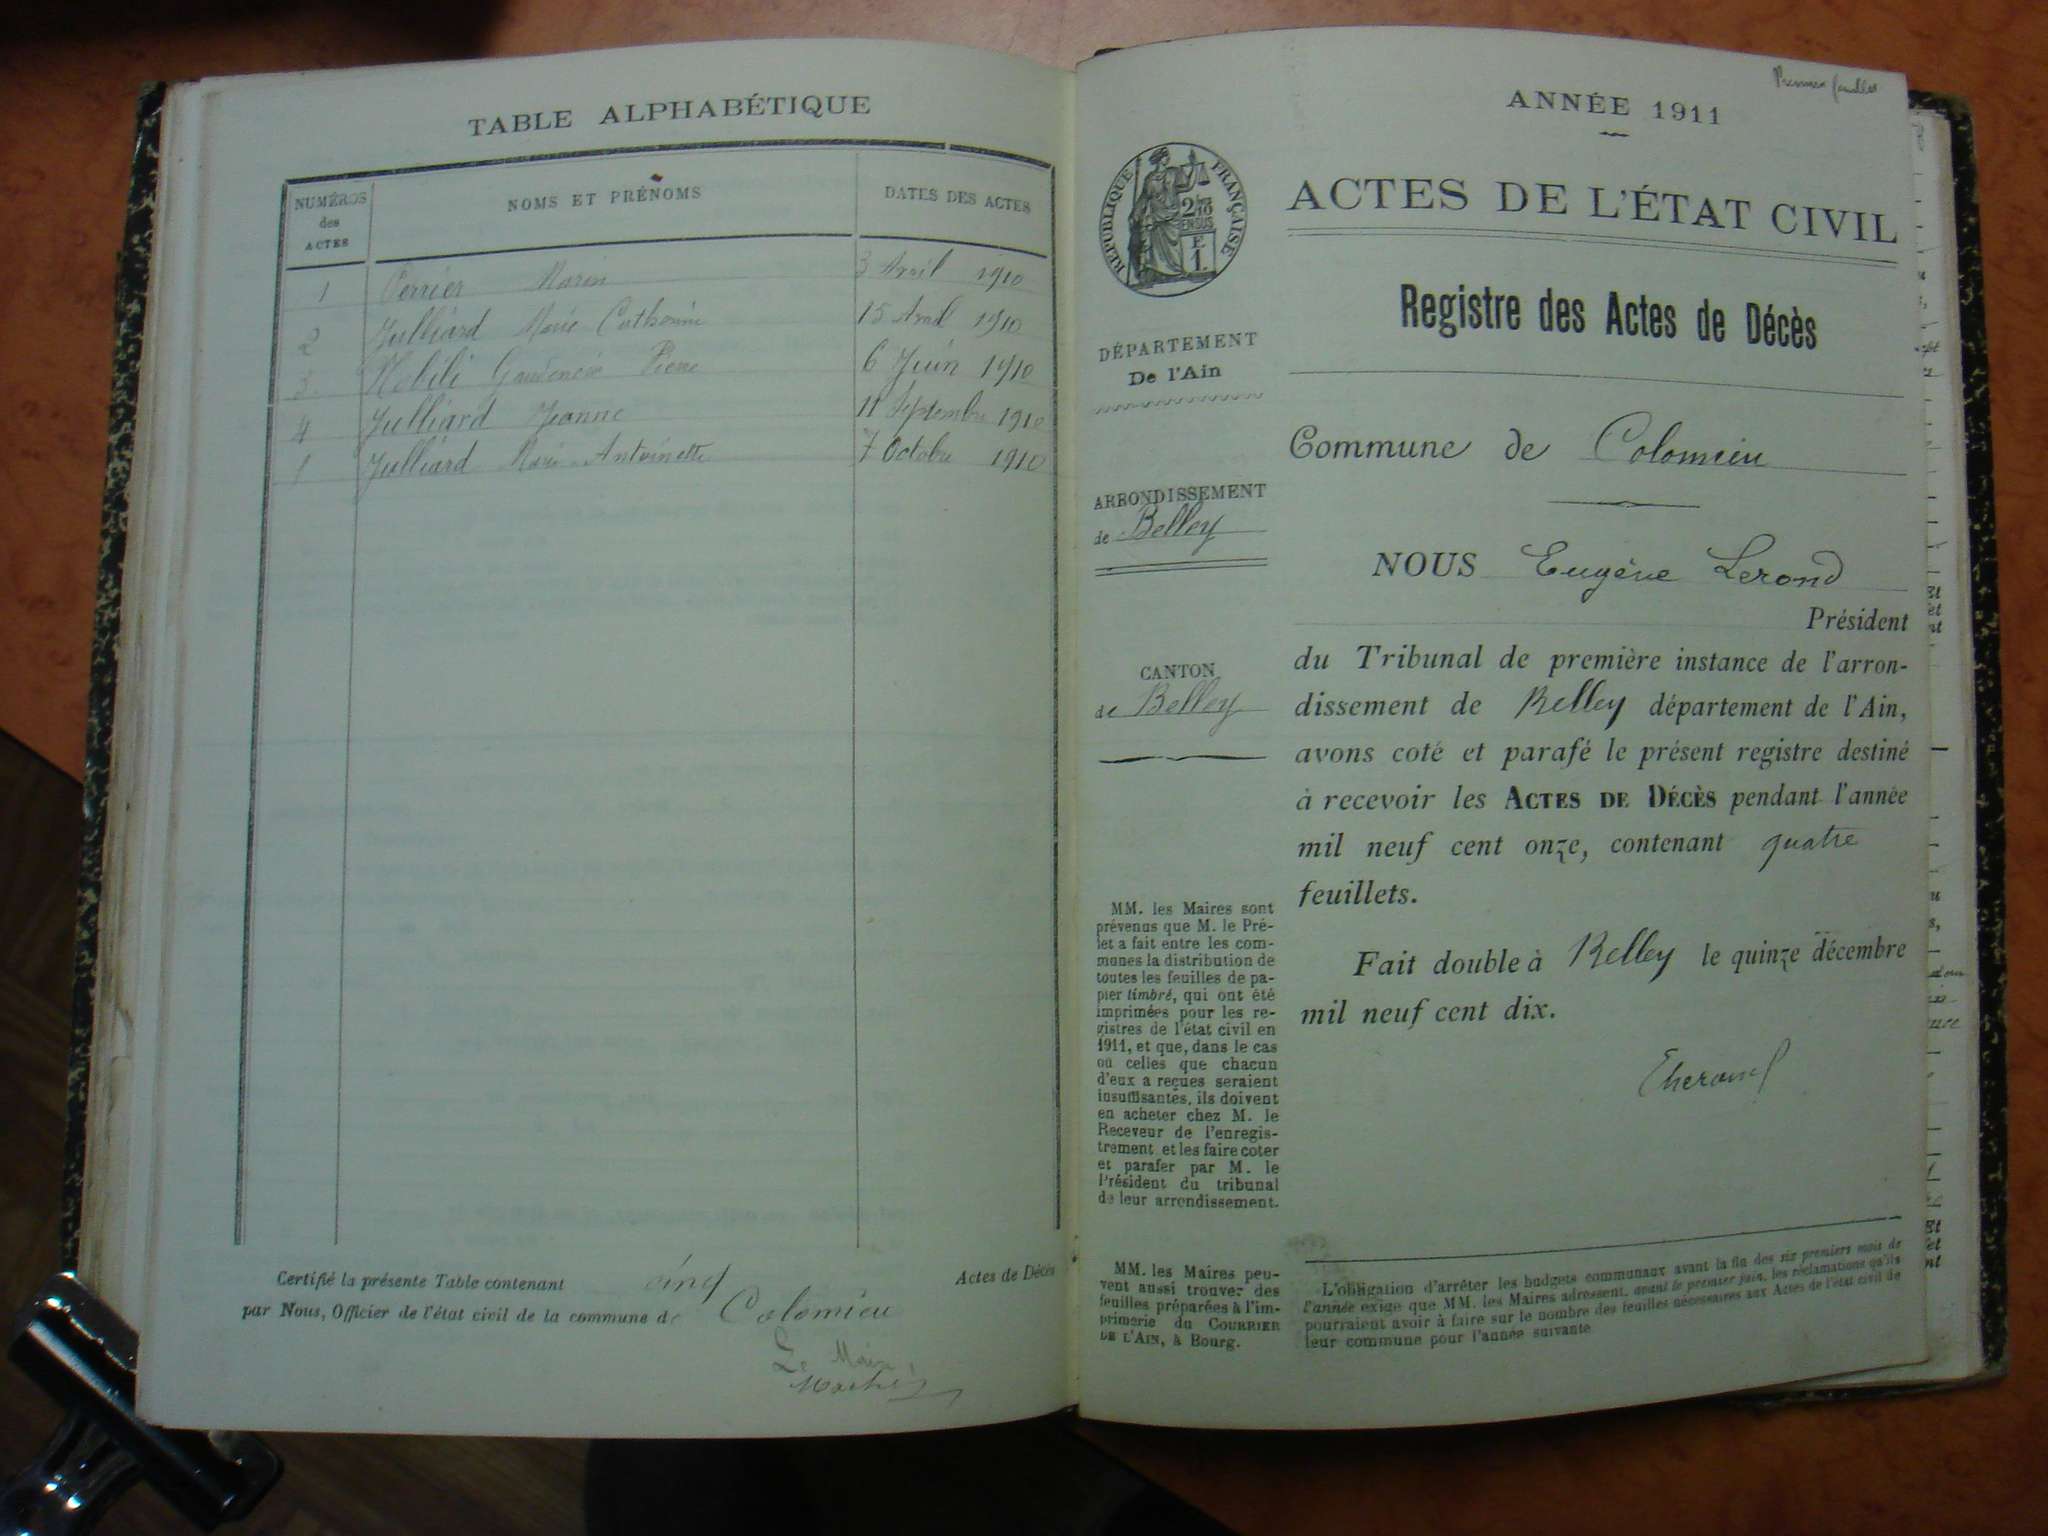 TABLE ALPHABÉTIQUE
NUMÉROS des ACTES
NOMS ET PRÉNOMS
DATES DES ACTES
1 Perrier Marin 3 Avril 1910
2 Julliard Marie Catherine 15 Avril 1910
3 Pierre 6 Juin 1910
4 Julliard Jeanne 11 Septembre 1910
Julliard Marie Antoinette 7 Octobre 1910
Certifié la présente Table contenant cinq Actes de Décès
par Nous, Officier de l'état civil de la commune de Colomieu
Le Maire
Premier feuillet
ANNÉE 1911
RÉPUBLIQUE FRANÇAISE
2/10
EN SUS
E
1
ACTES DE L'ÉTAT CIVIL
Registre des Actes de Décès
DÉPARTEMENT
De l'Ain
Commune de Colomieu
ARRONDISSEMENT
de Belley
CANTON
de Belley
NOUS Eugène Lerond
Président
du Tribunal de première instance de l'arron-
dissement de Belley département de l'Ain,
avons coté et parafé le présent registre destiné
à recevoir les ACTES DE DÉCÈS pendant l'année
mil neuf cent onze, contenant quatre
feuillets.
Fait double à Belley le quinze décembre
mil neuf cent dix.
MM. les Maires sont
prévenus que M. le Pré-
fet a fait entre les com-
munes la distribution de
toutes les feuilles de pa-
pier timbré, qui ont été
imprimées pour les re-
gistres de l'état civil en
1911, et que, dans le cas
où celles que chacun
d'eux a reçues seraient
insuffisantes, ils doivent
en acheter chez M. le
Receveur de l'enregis-
trement et les faire coter
et parafer par M. le
Président du tribunal
de leur arrondissement.
MM. les Maires peu-
vent aussi trouver des
feuilles préparées à l'im-
primerie du COURRIER
DE L'AIN, à Bourg.
L'obligation d'arrêter les budgets communaux avant la fin des six premiers mois de
l'année exige que MM. les Maires adressent, avant le premier juin, les réclamations qu'ils
pourraient avoir à faire sur le nombre des feuilles nécessaires aux Actes de l'état civil de
leur commune pour l'année suivante